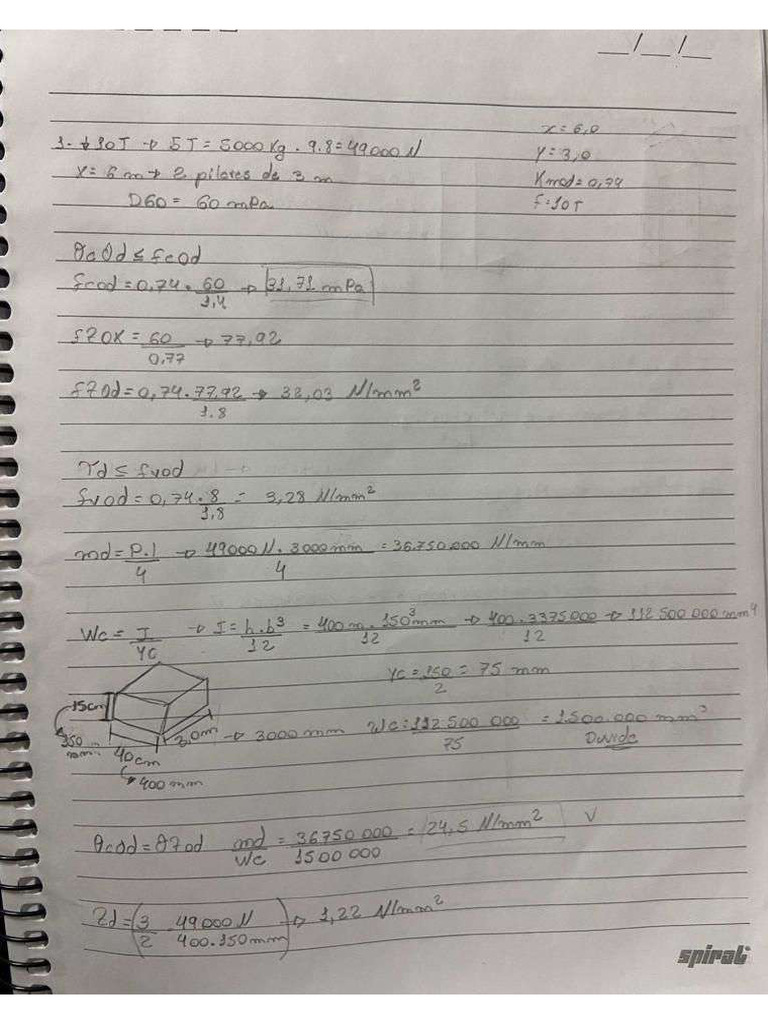 __/__/__
1- ↓10T → 5T = 5000 Kg . 9.8 = 49000 N
x = 6,0
y = 3,0
x = 6 m → 2 pilares de 3 m
Kmod = 0,74
D60 = 60 mPa
f = 10T
θc0d ≤ fc0d
fc0d = 0,74 . 60/1,4 → 31,71 mPa
f70K = 60/0,77 → 77,92
f70d = 0,74 . 77.92/1.8 → 32,03 N/mm²
Td ≤ fv0d
fv0d = 0,74 . 8/1,8 = 3,28 N/mm²
md = P.l/4 → 49000 N . 3000 mm/4 = 36.750.000 N/mm
Wc = I/yc → I = h.b³/12 = 400 m . 150³ mm/12 → 400 . 3375000/12 → 112 500 000 mm⁴
yc = 150/2 = 75 mm
15cm
3,0m → 3000 mm Wc = 112.500 000/75 = 1.500.000 mm³
150 mm
40cm
Duvida
→ 400 mm
θc0d = θ70d md/Wc = 36750 000/1500 000 = 24,5 N/mm² V
Zd = (3/2 . 49000 N/400.150mm) → 1,22 N/mm²
spiral